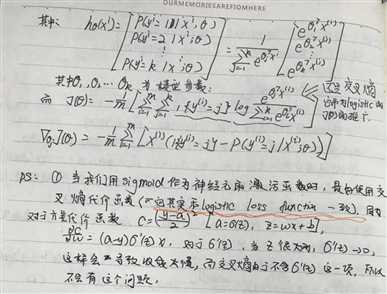 OURMEMORIESAREFROMHERE
其中: hθ(x^i) = [P(y^i=1|x^i;θ) P(y^i=2|x^i;θ) ⋮ P(y^i=k|x^i;θ)] = 1 / Σ_{j=1}^k e^{θ_j^T x^(i)} [e^{θ_1^T x^(i)} e^{θ_2^T x^(i)} ⋮ e^{θ_k^T x^(i)}]
其中θ₁,θ₂,…θk 为模型参数;
而 J(θ) = -1/m [Σ_{i=1}^m Σ_{j=1}^k 1{y^(i)=j} log e^{θ_j^T x^(i)} / Σ e^{θ_j^T x^(i)}]
交叉熵
logistic
J(θ)的推广
∇θj J(θ) = -1/m Σ_{i=1}^m [x^(i) (1{y^(i)=j} - P(y^(i)=j|x^(i);θ))]
PS: ① 当我们用sigmoid 作为神经元的激活函数时, 最好使用交
叉熵代价函数 (logistic loss function 一致), 因为
对于方差代价函数 C = (y-a)²/2 [a=σ(z), z=wx+b],
∂C/∂w = (a-y)σ'(z)x, 对于σ'(z), 当 z 很大时, σ'(z)→0,
这样会导致收敛太慢, 而交叉熵由于不含σ'(z)这一项, 所以
不会有这个问题.